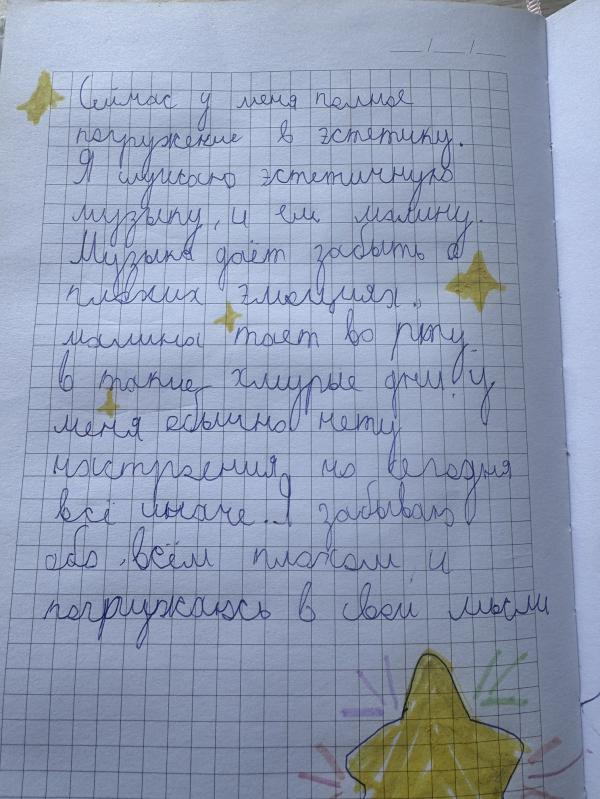 Сейчас у меня полное
погружение в эстетику.
Я слушаю эстетичную
музыку, и ем малину.
Музыка даёт забыть о
плохих эмоциях,
малина тает во рту
в такие хмурые дни у
меня обычно нету
настроения, но сегодня
всё иначе. Я забываю
обо всём плохом и
погружаюсь в свои мысли